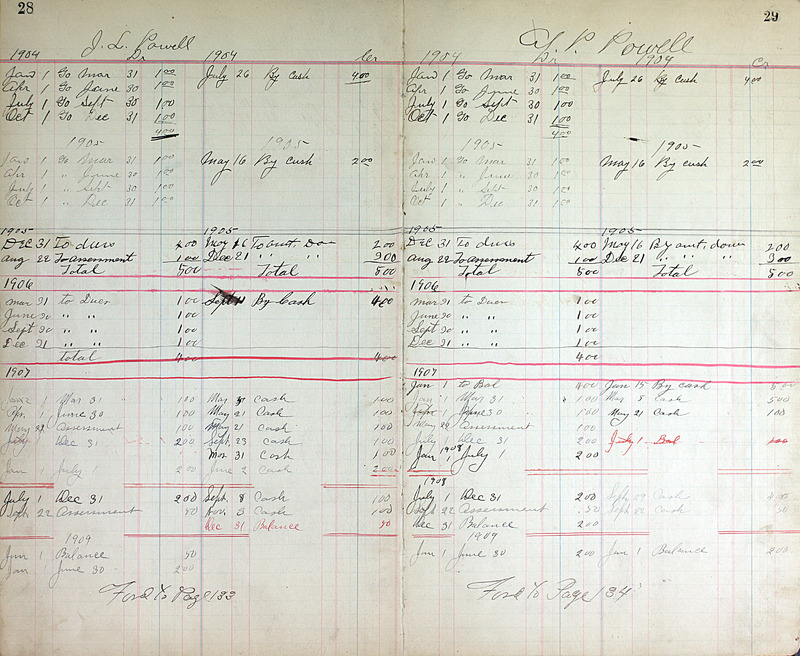 28
J. L. Powell
1904 Dr 1904 Cr
Jan 1 To Mar 31 1 00 July 26 By cash 4 00
Apr 1 To June 30 1 00
July 1 To Sept 30 1 00
Oct 1 To Dec 31 1 00
4 00
1905 1905
Jan 1 To Mar 31 1 00 May 16 By cash 2 00
Apr 1 " June 30 1 00
July 1 " Sept 30 1 00
Oct 1 " Dec 31 1 00
1905 1905
Dec 31 To dues 4 00 May 16 To amt Don 2 00
Aug 22 To assessment 1 00 Dec 21 " " " 3 00
Total 5 00 Total 5 00
1906
Mar 31 to Dues 1 00 Sept By Cash 4 00
June 30 " " 1 00
Sept 30 " " 1 00
Dec 31 " " 1 00
Total 4 00 4 00
1907
1 Mar 31 1 00 Mar Cash 1 00
Apr 1 June 30 1 00 May 21 Cash 1 00
May 29 Assessment 1 00 May 21 Cash 1 00
July 1 Dec 31 2 00 Sept 23 Cash 1 00
Mar 31 Cash 1 00
Jan 1 July 1 2 00 June 2 Cash 2 00
July 1 Dec 31 2 00 Sept. 8 Cash 1 00
Sept. 22 Assessment 50 Nov. 3 Cash 1 00
Dec 31 Balance 50
1909
Jan 1 Balance 50
Jan June 30 2 00
Ford To Page 133
29
Powell
1904 Dr 1904 Cr
Jan 1 To Mar 31 1 00 July 26 By cash 4 00
Apr 1 To June 30 1 00
July 1 To Sept 30 1 00
Oct 1 To Dec 31 1 00
4 00
1905 1905
Jan 1 To Mar 31 1 00 May 16 By cash 2 00
Apr 1 " June 30 1 00
July 1 " Sept 30 1 00
Oct 1 " Dec 31 1 00
1905 1905
Dec 31 To dues 4 00 May 16 By amt. down 2 00
Aug 22 To assessment 1 00 Dec 21 " " " 3 00
Total 5 00 Total 5 00
1906
Mar 31 to Dues 1 00
June 30 " " 1 00
Sept 30 " " 1 00
Dec 31 " " 1 00
4 00
1907
Jan 1 to Bal 4 00 Jan 15 By cash
Jan 1 Mar 31 1 00 Mar 8 Cash 5 00
Apr 1 June 30 1 00 May 21 Cash 1 00
May 29 Assessment 1 00
July 1 Dec 31 2 00 July 1 Bal 1 00
Jan 1 1908 July 1 2 00
1908
July 1 Dec 31 2 00 Sept. Cash
Sept. 22 Assessment 50 Sept. Cash 50
Dec 31 Balance 2 00
1909
Jan 1 June 30 2 00 Jan 1 Balance 2 00
Ford To Page 134